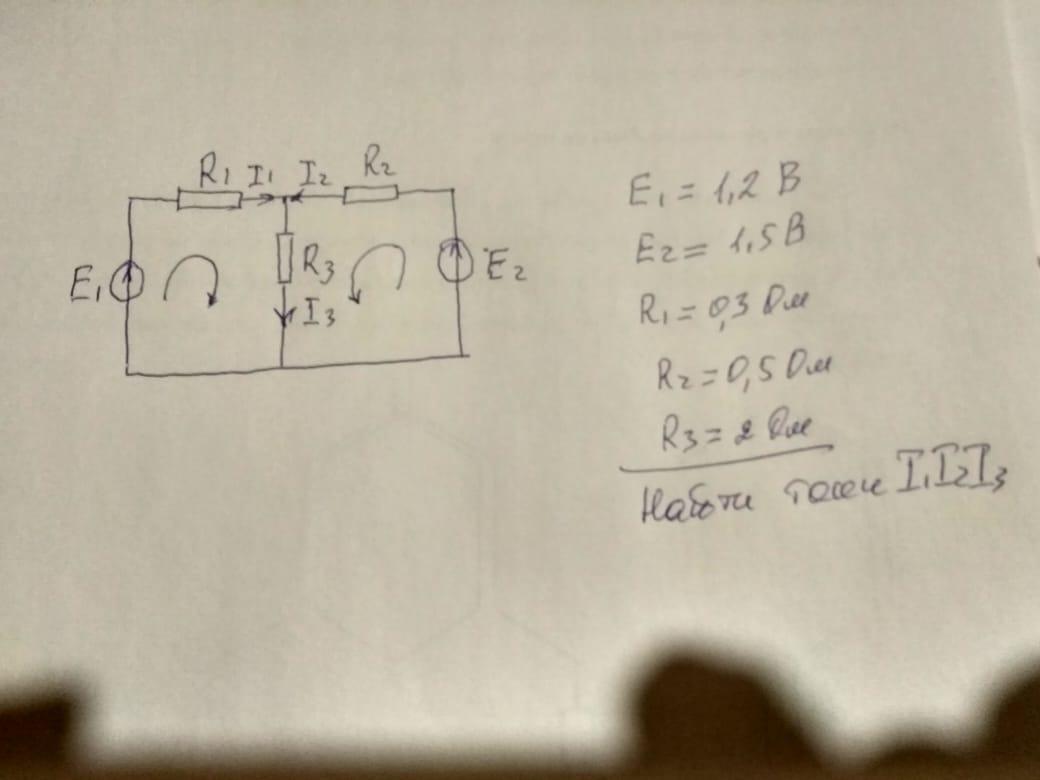 R1 I1 I2 R2
E1 R3 E2
I3
E1 = 1,2 В
E2 = 1,5 В
R1 = 0,3 Ом
R2 = 0,5 Ом
R3 = 2 Ом
Найти токи I1 I2 I3